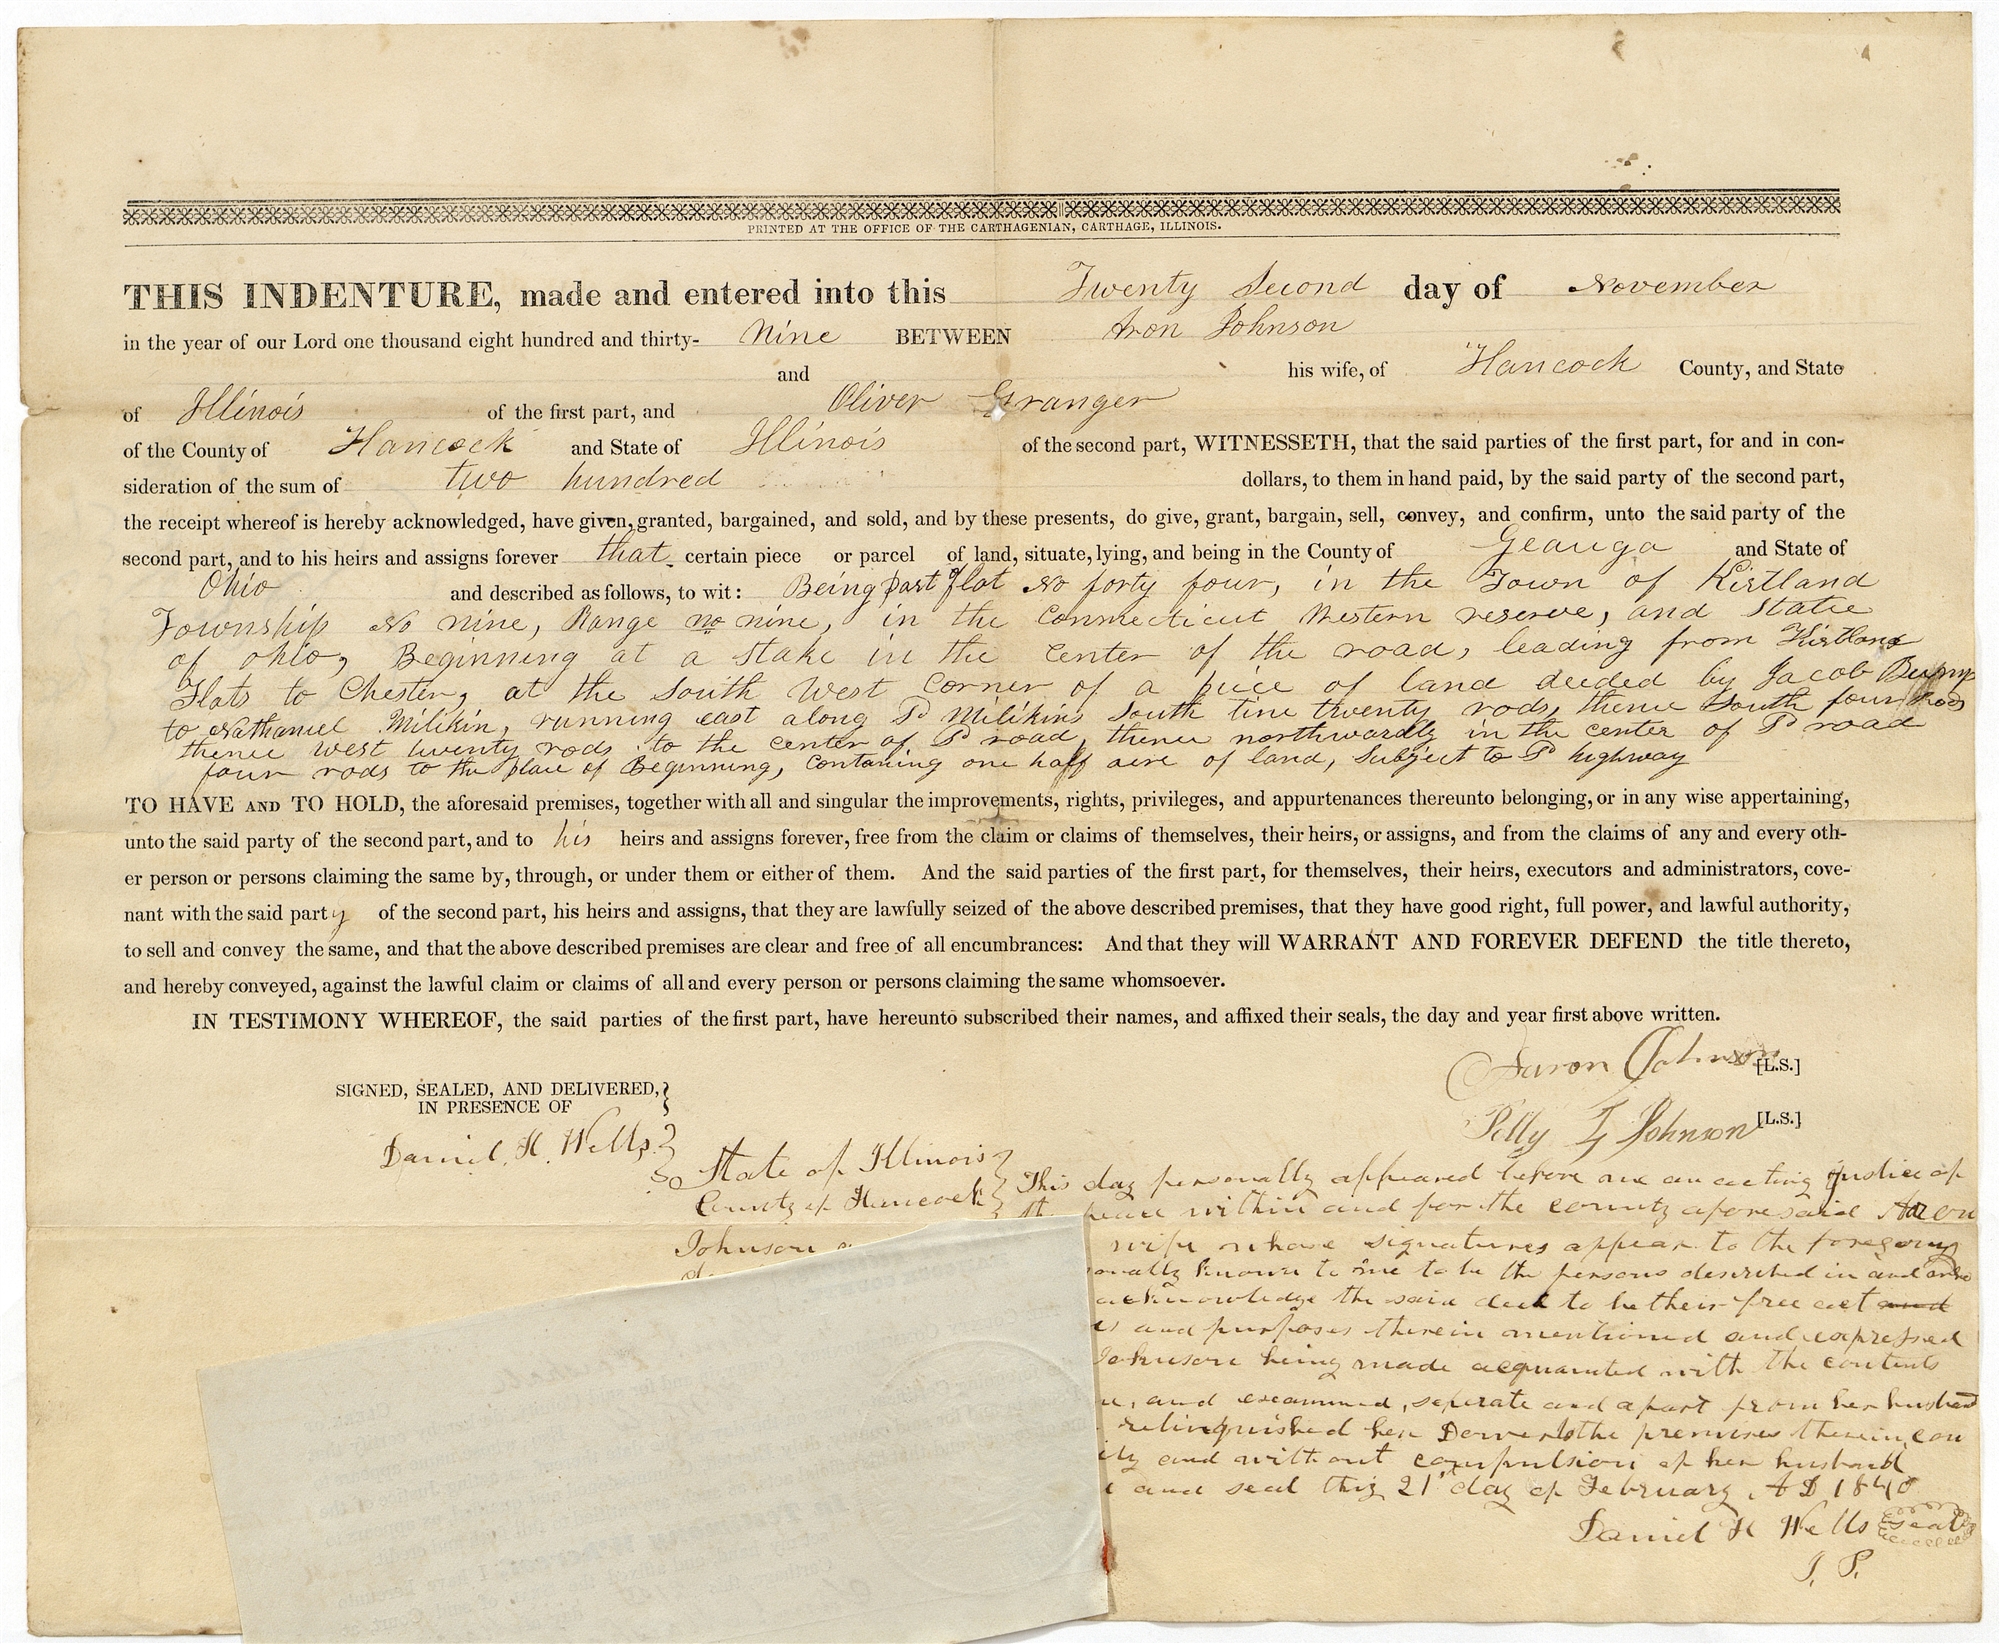 PRINTED AT THE OFFICE OF THE CARTHAGENIAN, CARTHAGE, ILLINOIS.
THIS INDENTURE, made and entered into this Twenty Second day of November
in the year of our Lord one thousand eight hundred and thirty- Nine BETWEEN Aron Johnson
and his wife, of Hancock County, and State
of Illinois of the first part, and Oliver Granger
of the County of Hancock and State of Illinois of the second part, WITNESSETH, that the said parties of the first part, for and in con-
sideration of the sum of two hundred dollars, to them in hand paid, by the said party of the second part,
the receipt whereof is hereby acknowledged, have given, granted, bargained, and sold, and by these presents, do give, grant, bargain, sell, convey, and confirm, unto the said party of the
second part, and to his heirs and assigns forever that certain piece or parcel of land, situate, lying, and being in the County of Geauga and State of
Ohio and described as follows, to wit: Being part of lot No forty four, in the Town of Kirtland
Township No nine, Range no nine, in the Connecticut Western reserve, and State
of ohio, Beginning at a stake in the center of the road, leading from Kirtland
Flats to Chester, at the South West Corner of a piece of land deeded by Jacob Bump
to Nathaniel Milikin, running east along Sd Milikins South line twenty rods, thence South four Rods
thence west twenty rods to the center of Sd road, thence northwardly in the center of Sd road
four rods to the place of Beginning, Containing one half acre of land, Subject to Sd highway
TO HAVE AND TO HOLD, the aforesaid premises, together with all and singular the improvements, rights, privileges, and appurtenances thereunto belonging, or in any wise appertaining,
unto the said party of the second part, and to his heirs and assigns forever, free from the claim or claims of themselves, their heirs, or assigns, and from the claims of any and every oth-
er person or persons claiming the same by, through, or under them or either of them. And the said parties of the first part, for themselves, their heirs, executors and administrators, cove-
nant with the said party of the second part, his heirs and assigns, that they are lawfully seized of the above described premises, that they have good right, full power, and lawful authority,
to sell and convey the same, and that the above described premises are clear and free of all encumbrances: And that they will WARRANT AND FOREVER DEFEND the title thereto,
and hereby conveyed, against the lawful claim or claims of all and every person or persons claiming the same whomsoever.
IN TESTIMONY WHEREOF, the said parties of the first part, have hereunto subscribed their names, and affixed their seals, the day and year first above written.
Aaron Johnson [L.S.]
SIGNED, SEALED, AND DELIVERED,
IN PRESENCE OF
Polly Z Johnson [L.S.]
Daniel. H. Wells
State of Illinois
County of Hancock
This day personally appeared before me an acting Justice of
the peace within and for the county aforesaid Aaron
Johnson
wife whose signatures appear to the foregoing
known to me to be the persons described in and who
acknowledge the said deed to be their free act and
and purposes therein mentioned and expressed
Johnson being made acquainted with the contents
and examined, seperate and apart from her husband
relinquished her Dower to the premises therein con
and without compulsion of her husband
and seal this 21st day of February, AD 1840
Daniel H Wells Seal
J. P.